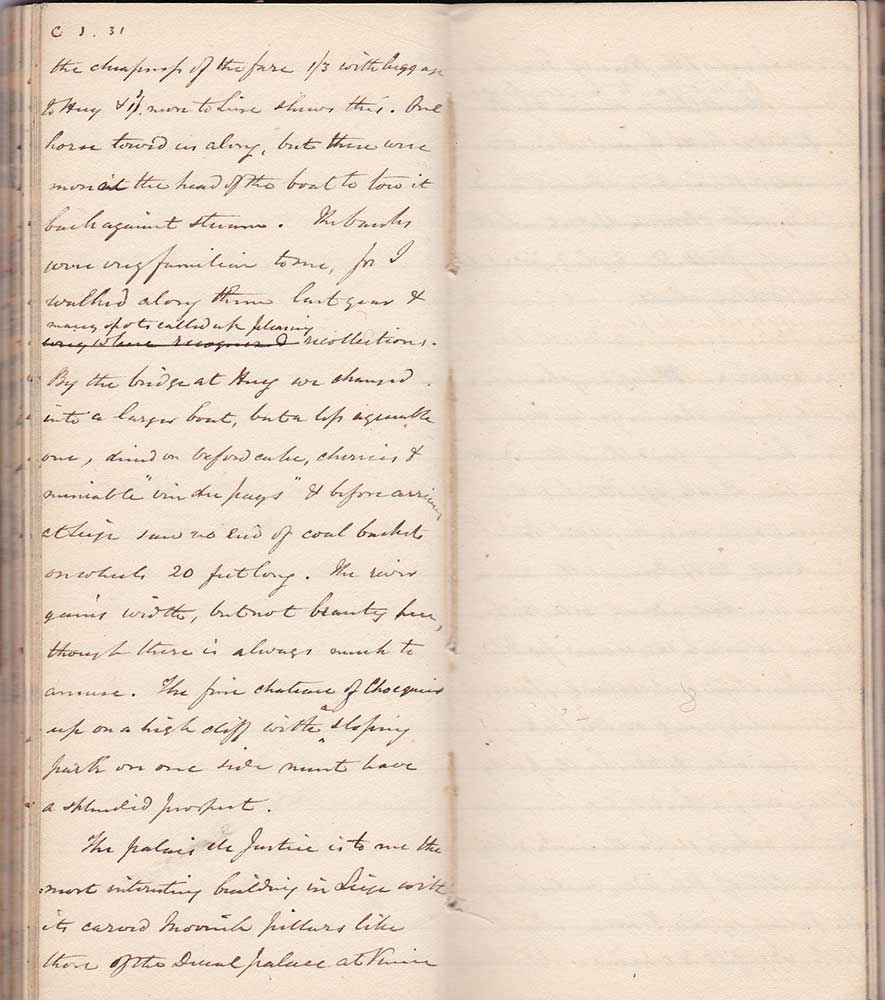 C J. 31
the cheapness of the fare 1/3 with luggage
to Huy & 1/ more to Liege shews this. One
horse towed us along, but there were
more at the head of the boat to tow it
back against stream. The banks
were very familiar to me, for I
walked along them last year &
many spots called up pleasing
recollections.
By the bridge at Huy we changed
into a larger boat, but a less agreeable
one, dined on beef and cake, cherries &
miserable "vin du pays" & before arriving
at Liege saw no end of coal baskets
on wheels 20 feet long. The river
gains width, but not beauty here,
though there is always much to
amuse. The fine chateau of Choquier
up on a high cliff with a sloping
park on one side must have
a splendid prospect.
The palais de Justice is to me the
most interesting building in Liege with
its carved Moorish pillars like
those of the Ducal palace at Venice